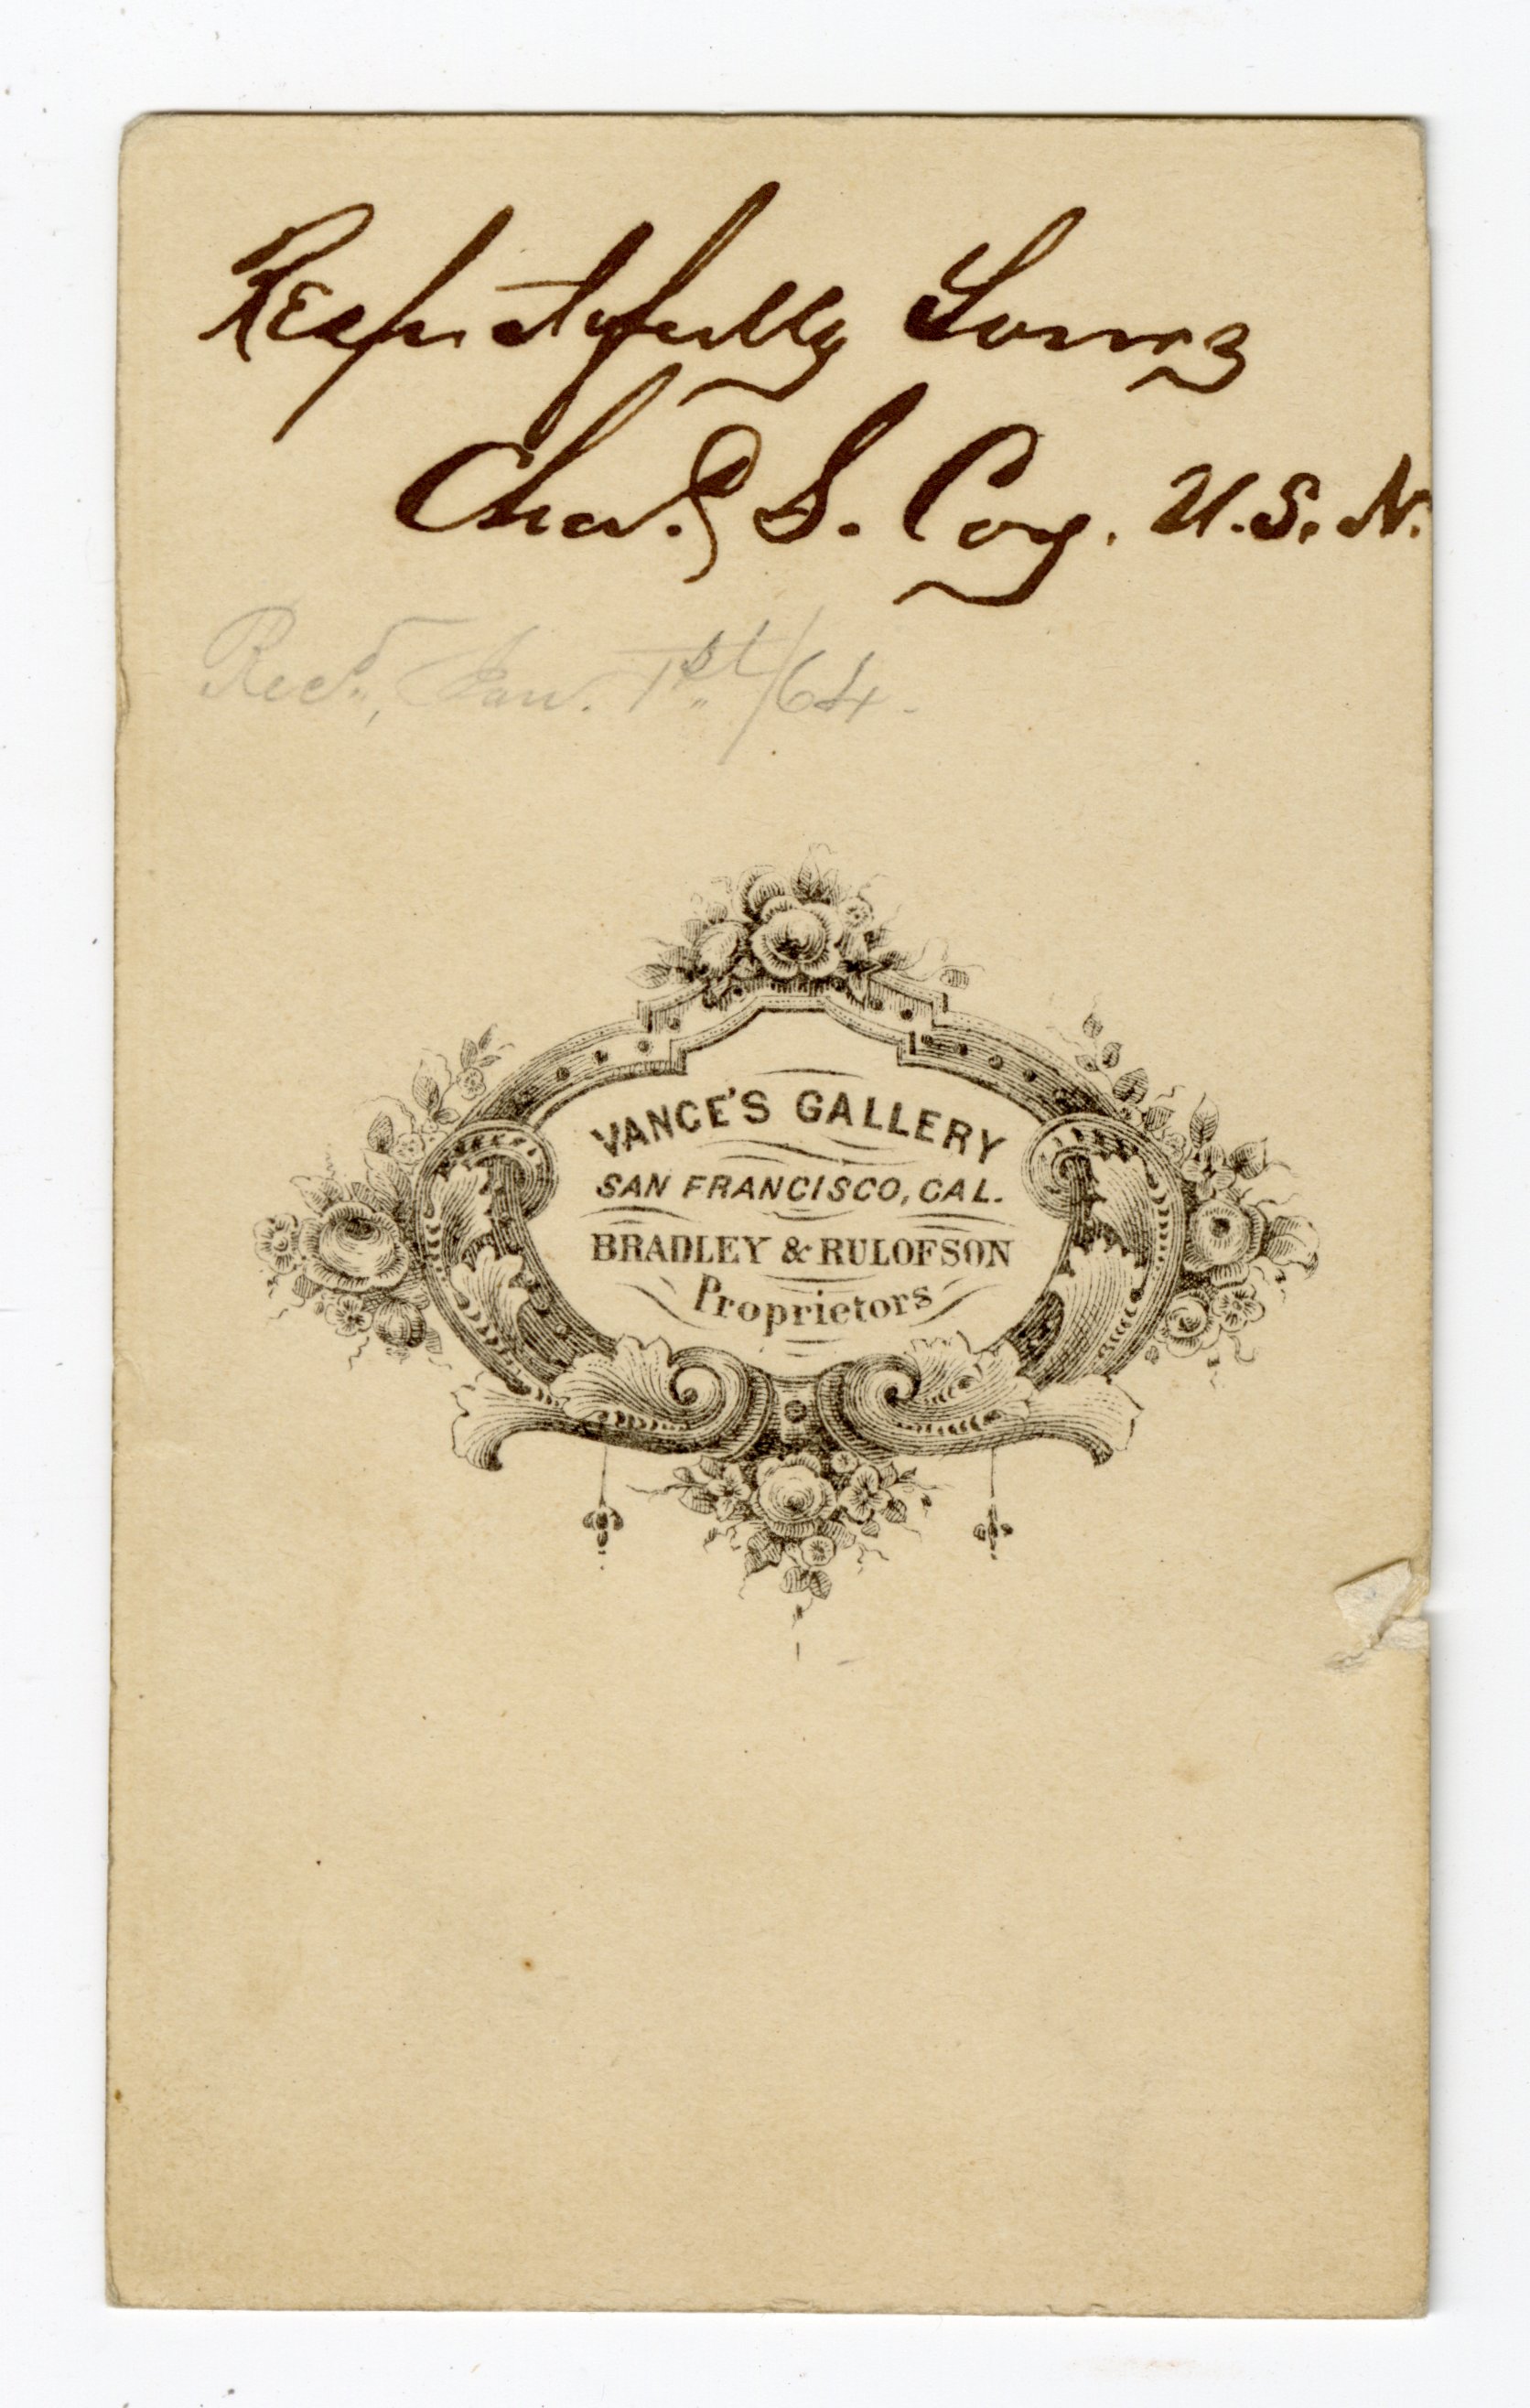 Respectfully Yours
Chas. S. Coy. U.S.N.
Recd., Jan. 1st/64.
VANCE'S GALLERY
SAN FRANCISCO, CAL.
BRADLEY & RULOFSON
Proprietors